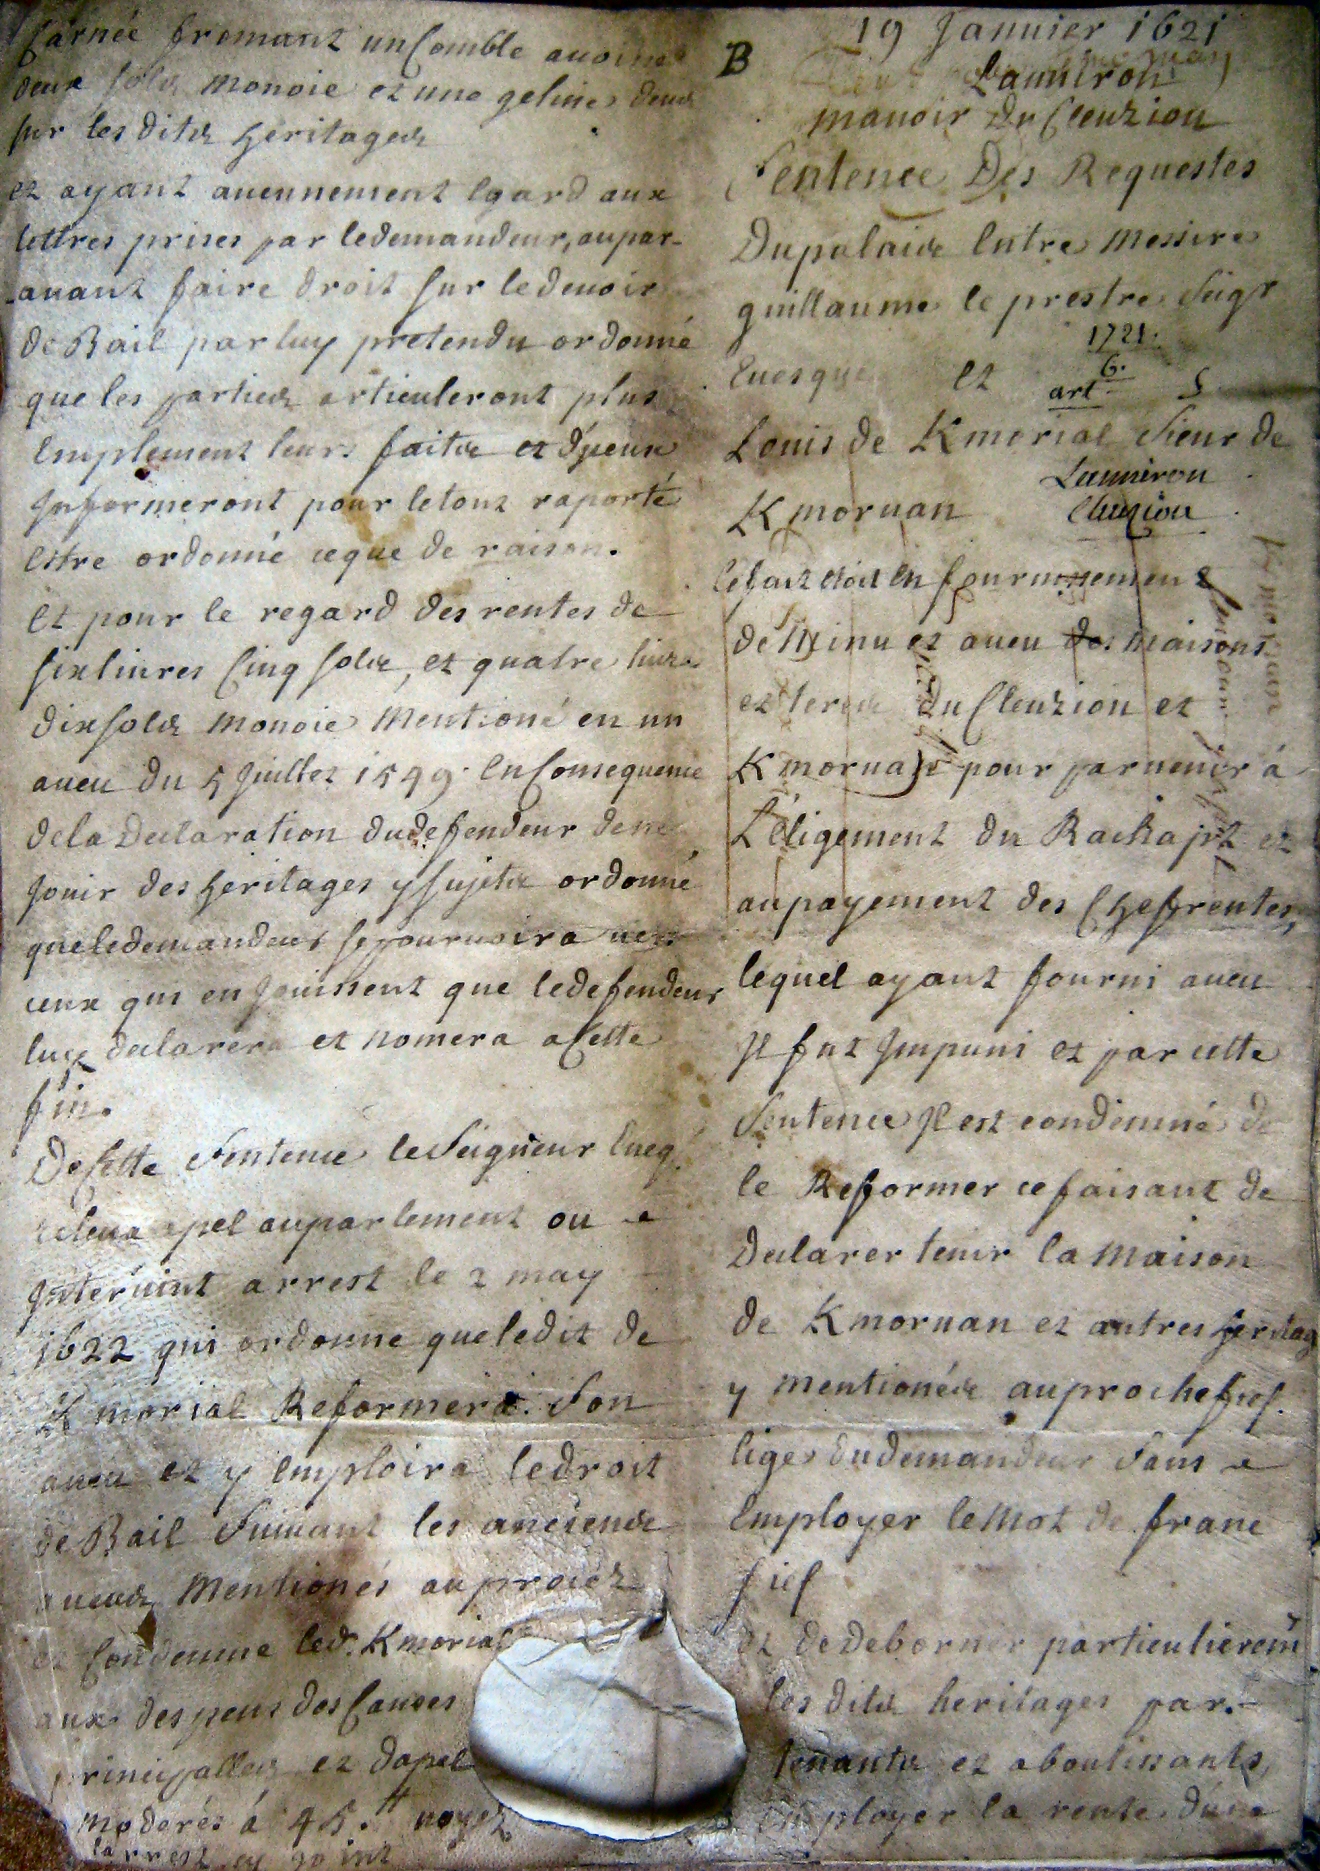 19 Janvier 1621
B
Lanniron
manoir Du Cleuziou
Sentence Des Requestes
Dupalais Entre Messire
guillaume le prestre Seigr
1721.
Evesque et art 6.
Louis de Kmorial Sieur de
Lanniron
Kmoruan Cleuziou
le fait etoit en fournissement
de Minu et aveu des maisons
et terres du Cleuziou et
Kmoruan pour parvenir à
L'eligement du Rachapt et
au payement des Chefrentes,
lequel ayant fourni aveu
Il fut Impuni et par cette
Sentence Il est condemné de
le Reformer ce faisant de
Declarer tenir la Maison
de Kmoruan et autres heritag
y mentionés au proche fief
lige du demandeur Sans
Employer le Mot de franc
fief
et de Deborner particulierem̃
les dits heritages par
tenants et aboutissants,
employer la rente d'une
Carnée fromant un Comble avoine
deux sols monoie et une geline deus
sur les dits heritages
et ayant aucunnement Egard aux
lettres prises par ledemandeur, aupar-
-avant faire droit sur ledevoir
de Bail par luy pretendu ordonné
que les parties articuleront plus
Emplement leurs faits et d'yceux
Informeront pour letout raporté
Estre ordonné ceque de raison.
Et pour le regard des rentes de
six livres Cinq sols, et quatre livres
dix sols monoie Mentioné en un
aveu du 5 Juillet 1549. En Consequence
dela Declaration dudefendeur dene
Jouir des heritages y sujets ordonné
queledemandeur sepourvoira vers
ceux qui en Jouissent que ledefendeur
luy declarera et nomera a Cette
fin.
De Cette Sentence le Seigneur Eveq.
releva apel auparlement ou
Intervint arrest le 2 may
1622 qui ordonne queledit de
Kmorial Reformera Son
aveu et y Emploira ledroit
de Bail Suivant les anciens
aveus Mentionés au procez
et Condemne led. Kmorial
aux despens des Causes
principalles et dapel
moderés à 45.tt voyez
larrest cy joint